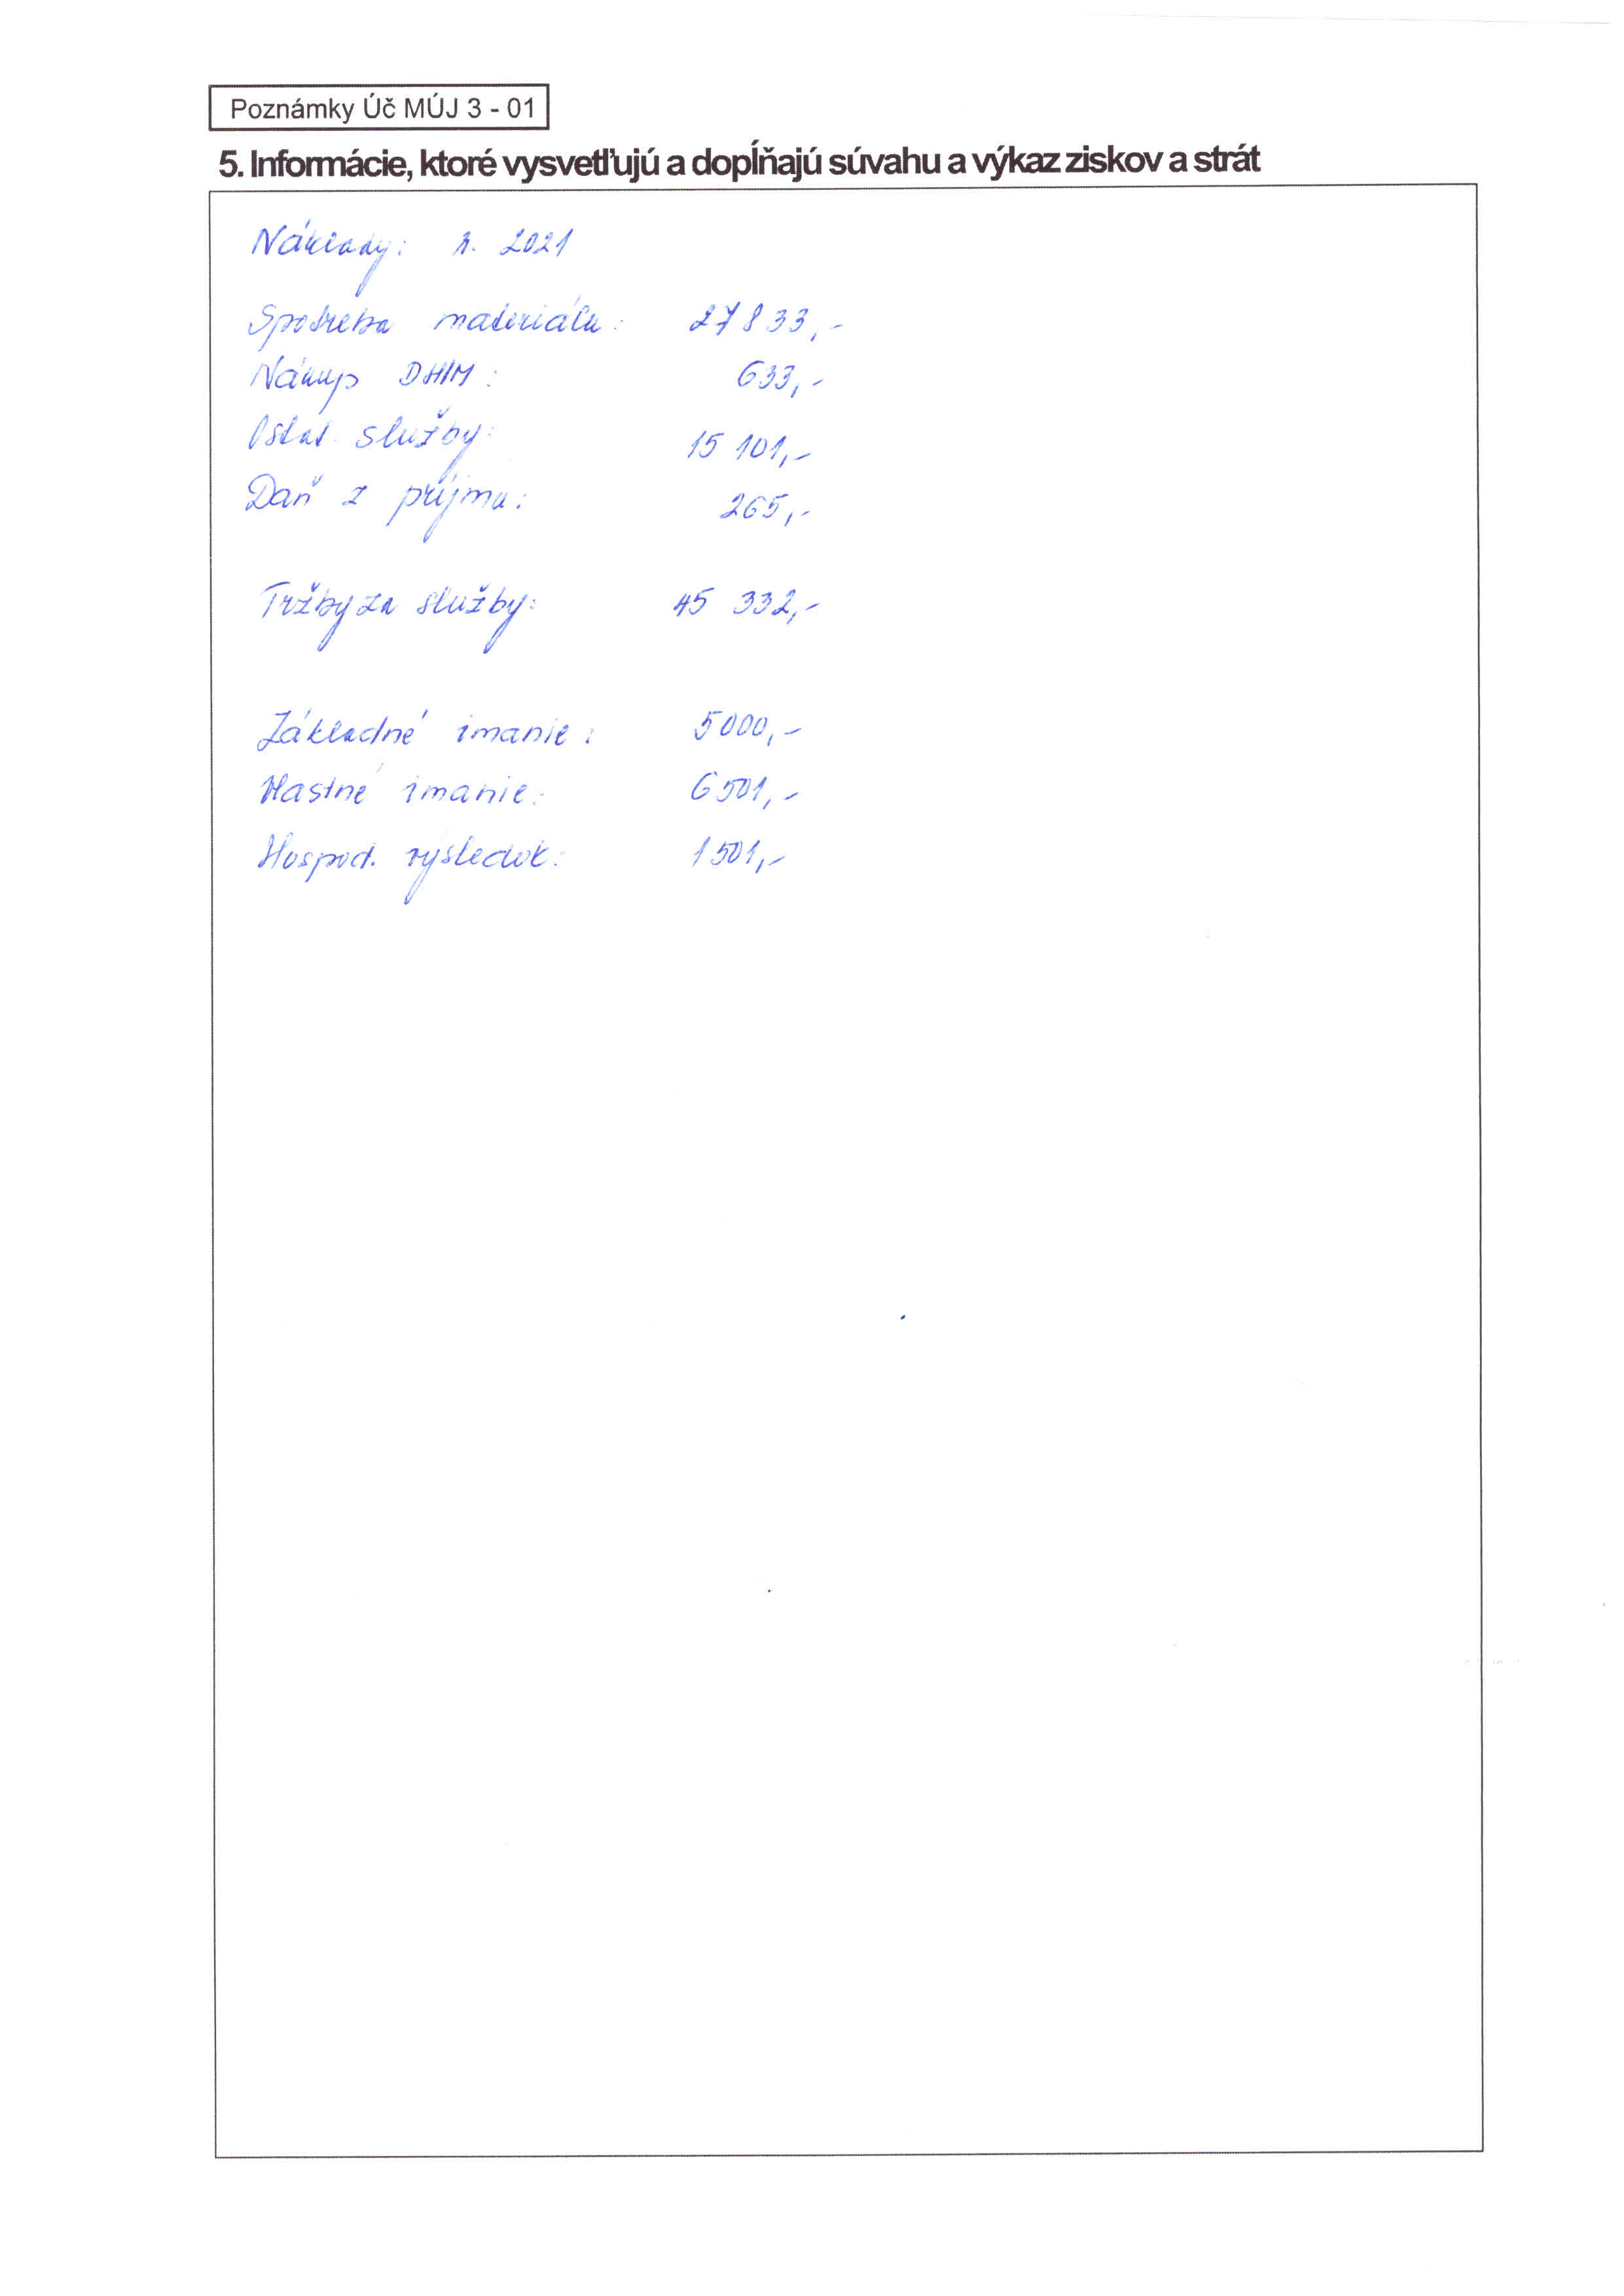 Poznámky Úč MÚJ 3 - 01
5. Informácie, ktoré vysvetľujú a dopĺňajú súvahu a výkaz ziskov a strát
Náklady: r. 2021
Spotreba materiálu: 27 833,-
Nákup DHIM: 633,-
Ostat. služby: 15 101,-
Daň z príjmu: 265,-
Tržby za služby: 45 332,-
Základné imanie: 5000,-
Vlastné imanie: 6501,-
Hospod. výsledok: 1501,-